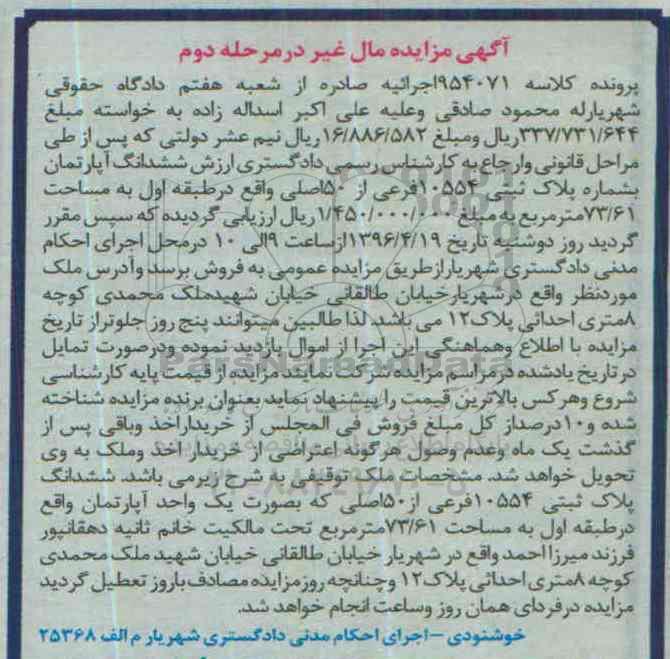 آگهی مزایده مال غیر درمرحله دوم
پرونده کلاسه ۹۵۴۰۷۱اجرائیه صادره از شعبه هفتم دادگاه حقوقی
شهریارله محمود صادقی وعلیه علی اکبر اسداله زاده به خواسته مبلغ
۳۳۷/۷۳۱/۶۴۴ریال ومبلغ ۱۶/۸۸۶/۵۸۲ریال نیم عشر دولتی که پس از طی
مراحل قانونی وارجاع به کارشناس رسمی دادگستری ارزش ششدانگ آپارتمان
بشماره پلاک ثبتی ۱۰۵۵۴فرعی از ۵۰اصلی واقع درطبقه اول به مساحت
۷۳/۶۱مترمربع به مبلغ ۱/۴۵۰/۰۰۰/۰۰۰ ریال ارزیابی گردیده که سپس مقرر
گردید روز دوشنبه تاریخ ۱۳۹۶/۴/۱۹ازساعت ۹الی ۱۰ درمحل اجرای احکام
مدنی دادگستری شهریارازطریق مزایده عمومی به فروش برسد وآدرس ملک
موردنظر واقع درشهریارخیابان طالقانی خیابان شهیدملک محمدی کوچه
۸متری احداثی پلاک۱۲ می باشد لذا طالبین میتوانند پنج روز جلوتراز تاریخ
مزایده با اطلاع وهماهنگی این اجرا از اموال بازدید نموده ودرصورت تمایل
در تاریخ یادشده درمراسم مزایده شرکت نمایند مزایده از قیمت پایه کارشناسی
شروع وهرکس بالاترین قیمت را پیشنهاد نماید بعنوان برنده مزایده شناخته
شده و۱۰درصداز کل مبلغ فروش فی المجلس از خریداراخذ وباقی پس از
گذشت یک ماه وعدم وصول هرگونه اعتراضی از خریدار اخذ وملک به وی
تحویل خواهد شد. مشخصات ملک توقیفی به شرح زیرمی باشد. ششدانگ
پلاک ثبتی ۱۰۵۵۴فرعی از۵۰اصلی که بصورت یک واحد آپارتمان واقع
درطبقه اول به مساحت ۷۳/۶۱مترمربع تحت مالکیت خانم ثانیه دهقانپور
فرزند میرزا احمد واقع در شهریار خیابان طالقانی خیابان شهید ملک محمدی
کوچه ۸متری احداثی پلاک۱۲ وچنانچه روزمزایده مصادف باروز تعطیل گردید
مزایده درفردای همان روز وساعت انجام خواهد شد.
خوشنودی –اجرای احکام مدنی دادگستری شهریار م الف ۲۵۳۶۸